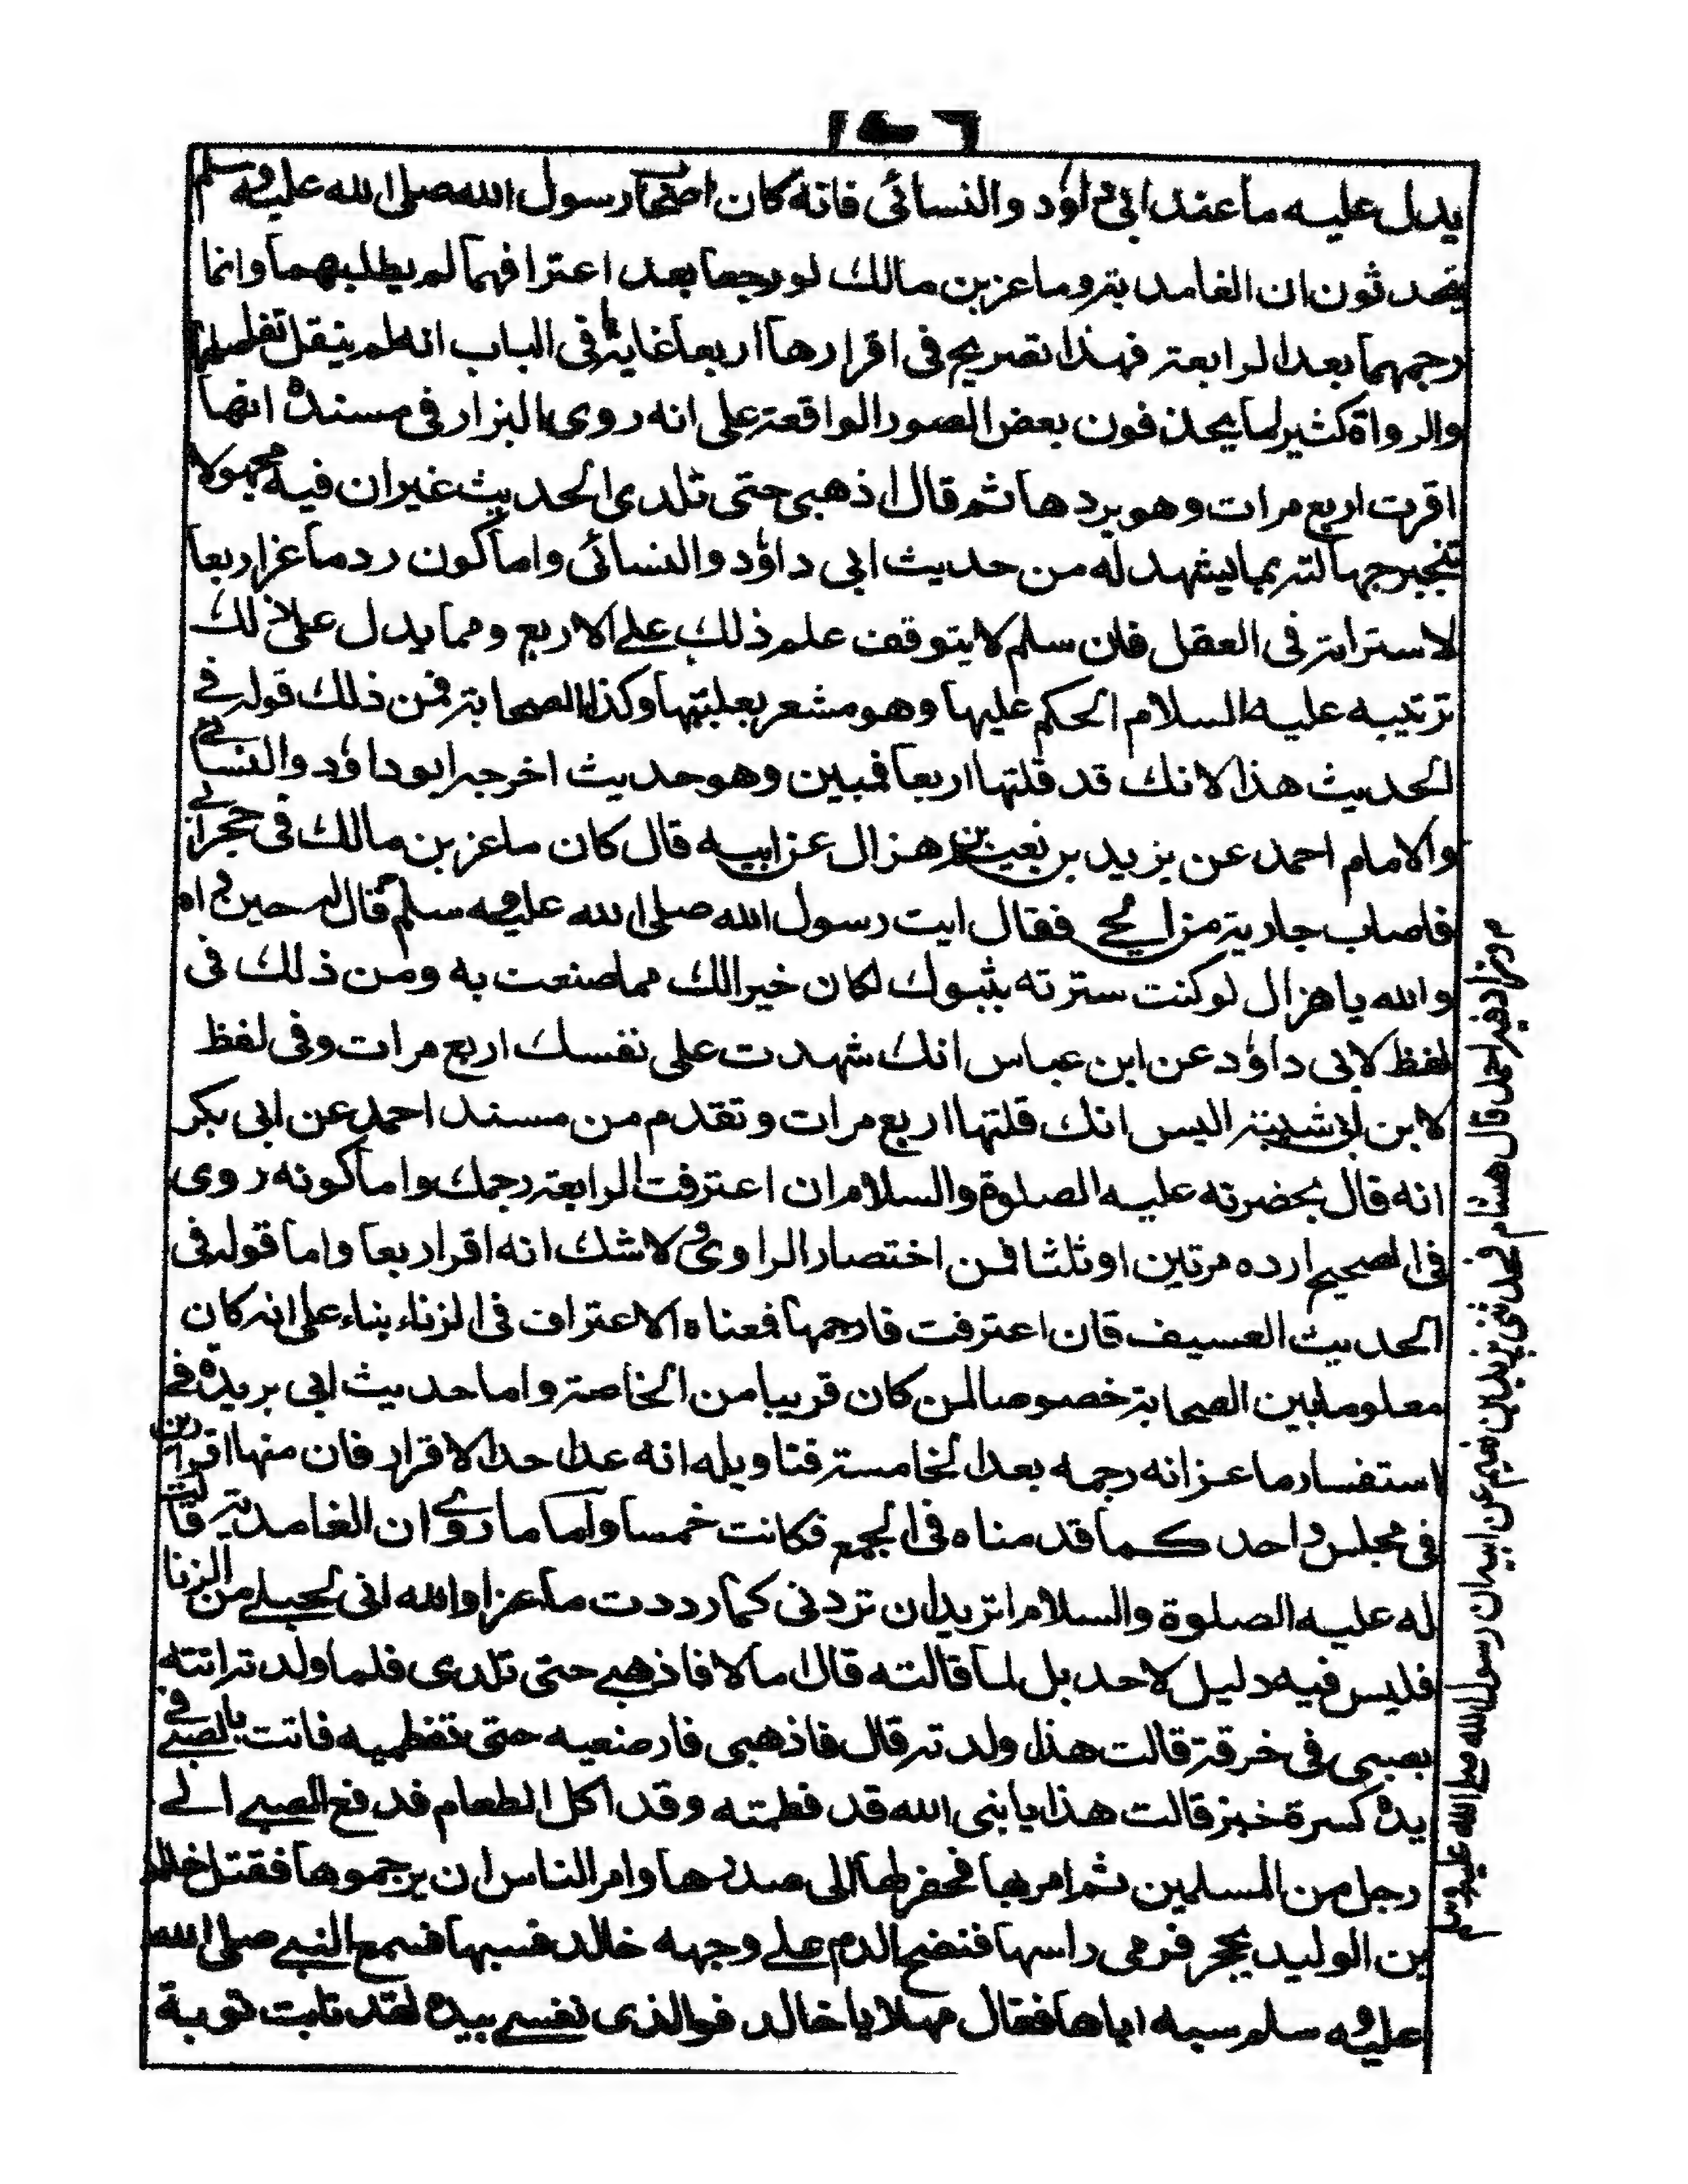 يدل عليه ما عند ابي داؤد والنسائى فانه كان اصحاب رسول الله صلى الله عليه وسلم
يتحدثون ان الغامدية وماعز بن مالك لو رجعا بعد اعترافهما لم يطلبهما وانما
رجمهما بعد الرابعة فهذا تصريح فى اقرارها اربعا غاية ما فى الباب انه لم ينقل تفاصيلها
والرواة كثير لما يحذفون بعض الصور الواقعة على انه روى البزار فى مسنده انها
اقرت اربع مرات وهو يردها ثم قال اذهبى حتى تلدى الحديث غير ان فيه مجهولا
تنجبر جهالته بما يشهد له من حديث ابى داؤد والنسائى واما كون رد ماعز اربعا
لاسترابته فى العقل فان سلم لا يتوقف علم ذلك على الاربع ومما يدل على ذلك
ترتيبه عليه السلام الحكم عليها وهو مشعر بعليتها وكذا الصحابة فمن ذلك قوله فى
الحديث هذا لانك قد قلتها اربعا فبمن وهو حديث اخرجه ابو داؤد والنسائى
والامام احمد عن يزيد بن نعيم بن هزال عن ابيه قال كان ماعز بن مالك فى حجر ابى
فاصاب جارية من الحى فقال ايت رسول الله صلى الله عليه وسلم قال له حين راه
والله يا هزال لو كنت سترته بثوبك لكان خيرا لك مما صنعت به ومن ذلك فى
لفظ لابى داؤد عن ابن عباس انك شهدت على نفسك اربع مرات وفى لفظ
لابن ابى شيبة اليس انك قلتها اربع مرات وتقدم من مسند احمد عن ابى بكر
انه قال بحضرته عليه الصلوة والسلام ان اعترفت الرابعة رجمك واما كونه روى
فى الصحيح ارده مرتين او ثلثا فمن اختصار الراوى ولا شك انه اقر اربعا واما قوله فى
الحديث العسيف فان اعترفت فارجمها فمعناه الاعتراف فى الزناء بناء على انه كان
معلوما بين الصحابة خصوصا لمن كان قريبا من الخاصة واما حديث ابى بريدة فى
استفسار ماعز انه رجمه بعد الخامسة فتاويله انه عد احد الاقرار فان منها اقرارين
فى مجلس واحد كما قدمناه فى الجمع فكانت خمسا واما ما روى ان الغامدية قالت
له عليه الصلوة والسلام اتريد ان تردنى كما رددت ماعزا والله انى لحبلى من الزنا
فليس فيه دليل لاحد بل لما قالته قال اما لا فاذهبى حتى تلدى فلما ولدته اتته
بصبى فى خرقة قالت هذا ولدته قال فاذهبى فارضعيه حتى تفطميه فاتت بالصبى فى
يده كسرة خبز قالت هذا يا نبى الله قد فطمته وقد اكل الطعام فدفع الصبى الى
رجل من المسلمين ثم امر بها فحفر لها الى صدرها وامر الناس ان يرجموها فقتل خالد
بن الوليد بحجر فرمى راسها فنضح الدم على وجهه خالد فسبها فسمع النبى صلى الله
عليه وسلم سبه اياها فقال مهلا يا خالد فوالذى نفسى بيده لقد تابت توبة
وزاد فيه احمد قال هشام فحدثنى يزيد بن نعيم عن ابيه ان رسول الله صلى الله عليه وسلم